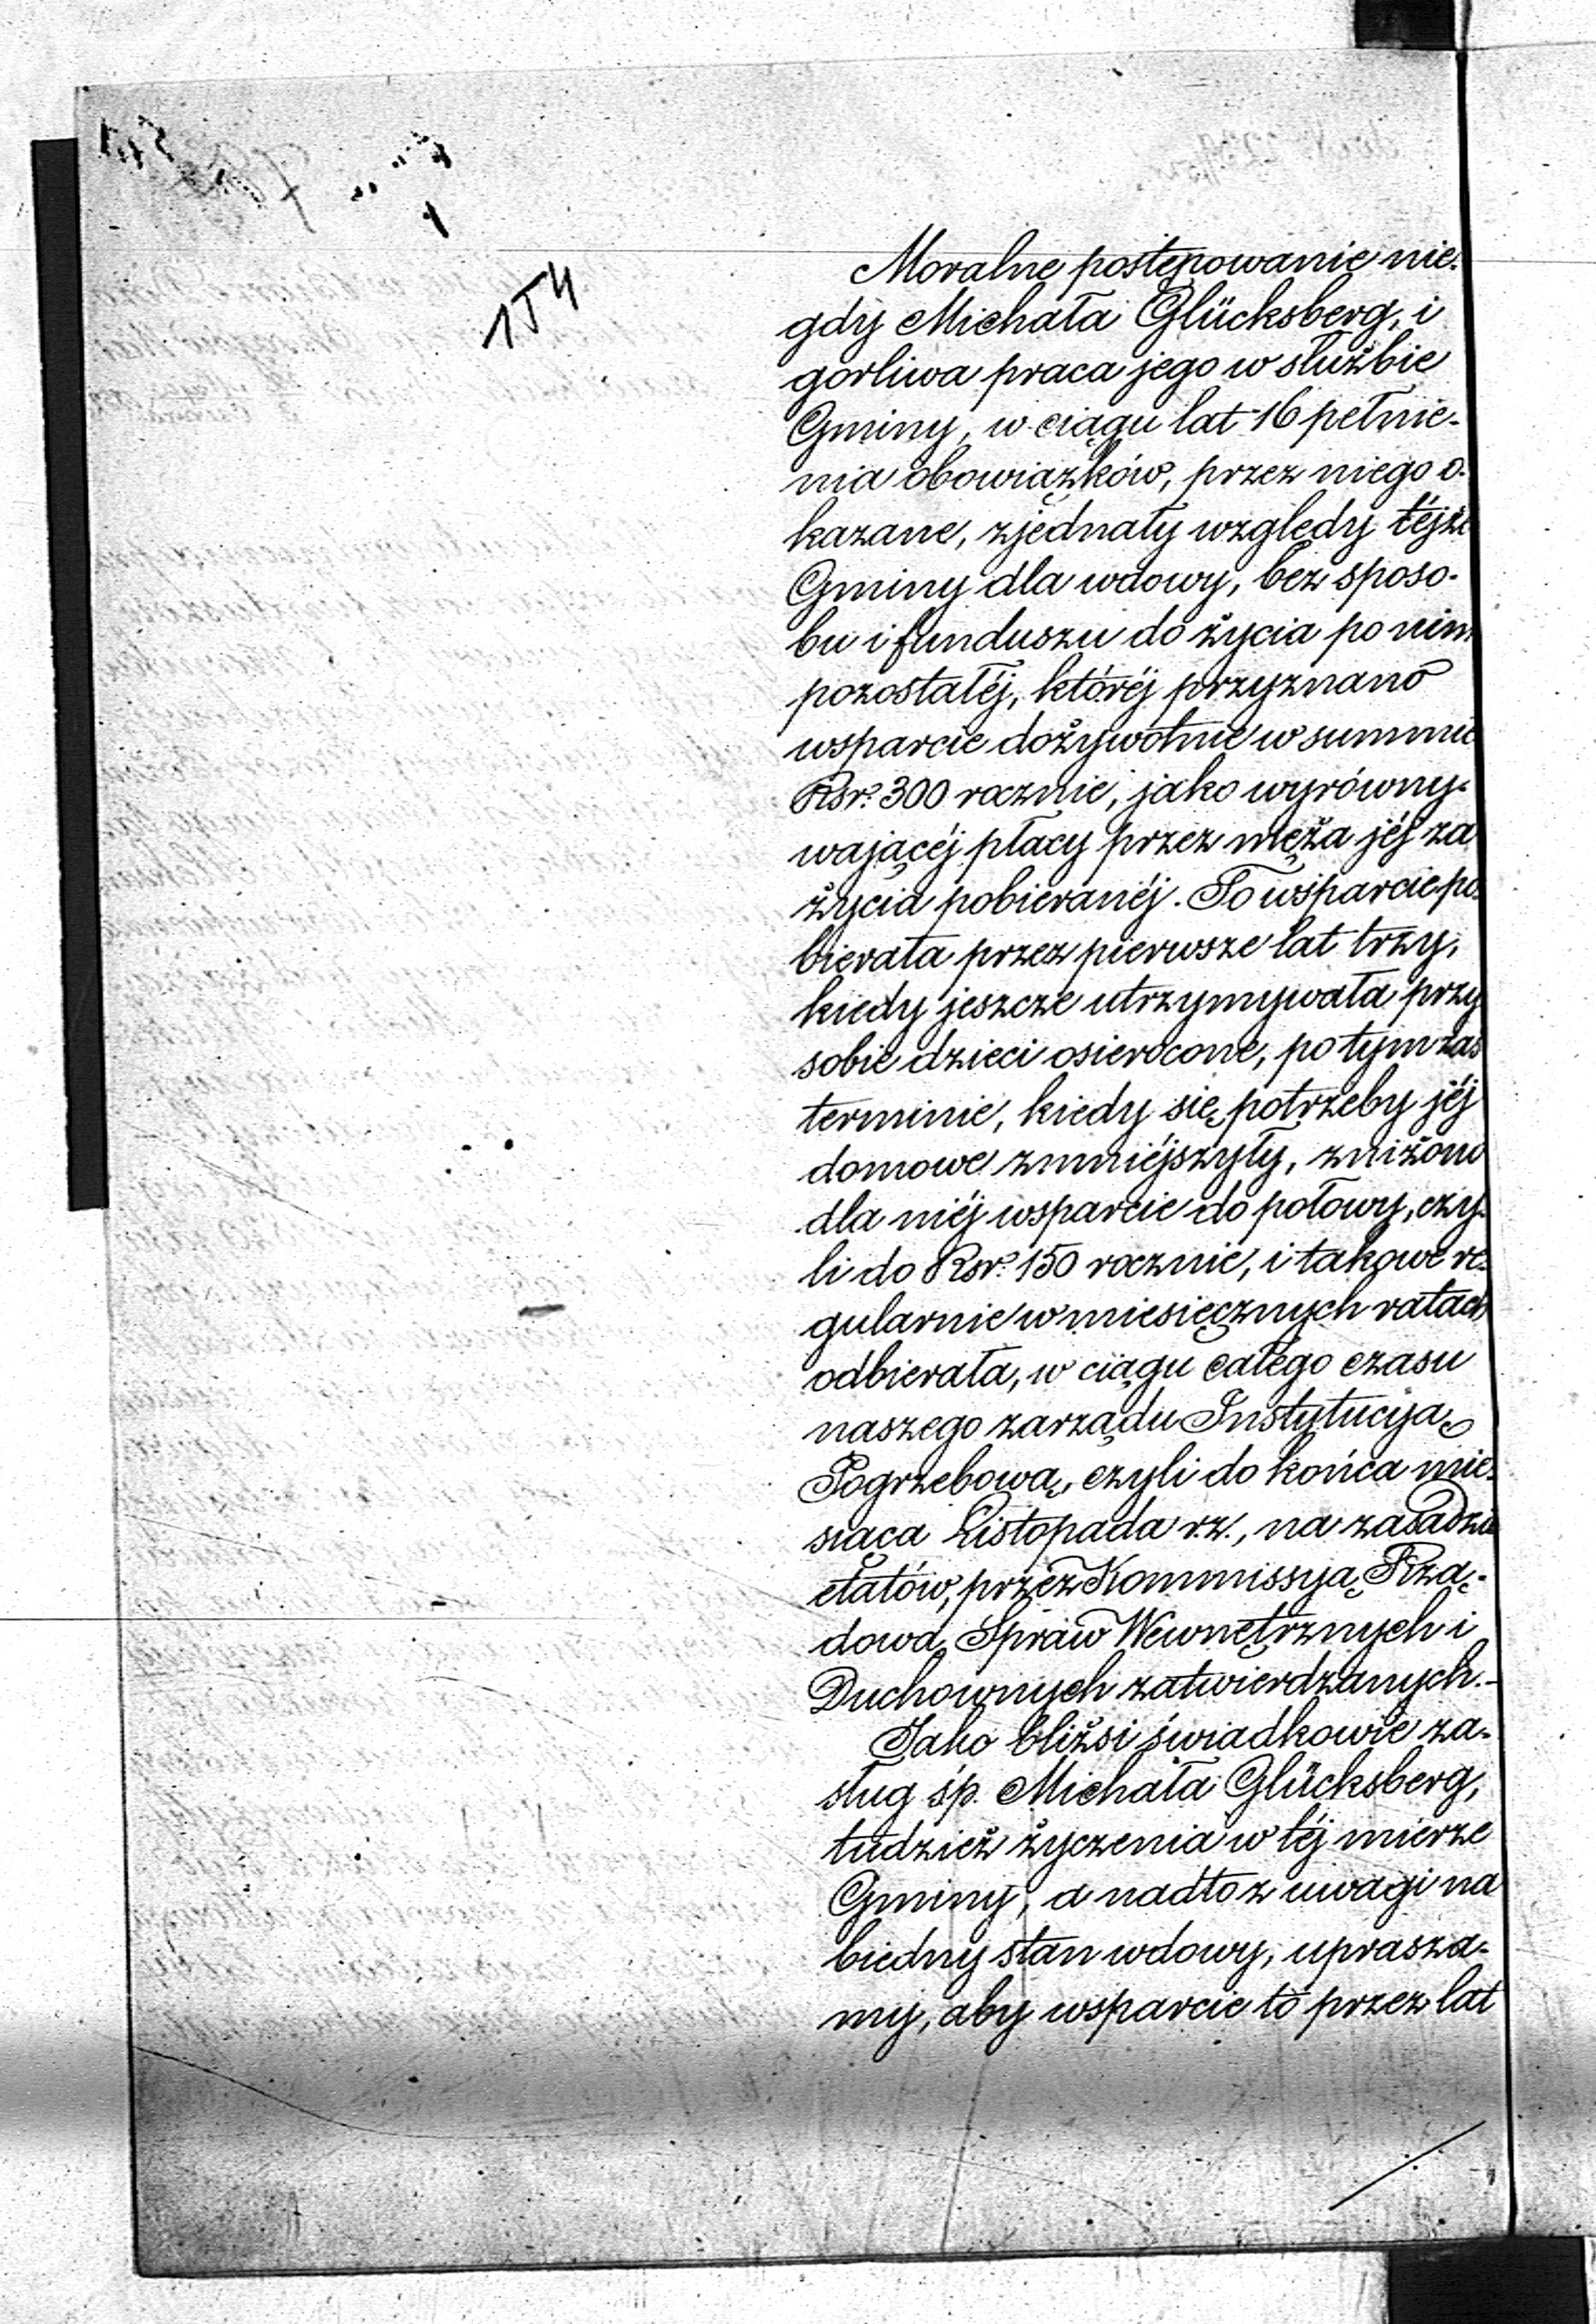 154
Moralne postępowanie nie-
gdy Michała Glücksberg, i
gorliwa praca jego w służbie
Gminy, w ciągu lat 16 pełnie-
nia obowiązków, przez niego o-
kazane, zjednały względy téjże
Gminy dla wdowy, bez sposo-
bu i funduszu do życia po nim
pozostałéj, któréj przyznano
wsparcie dożywotnie w summie
Rsr. 300 rocznie, jako wyrówny-
wającéj płacy przez męża jéj za
życia pobieranéj. To wsparcie po-
bierała przez pierwsze lat trzy,
kiedy jeszcze utrzymywała przy
sobie dzieci osierocone, po tym zaś
terminie, kiedy się potrzeby jéj
domowe zmniéjszyły, zniżono
dla niéj wsparcie do połowy, czy-
li do Rsr. 150 rocznie, i takowe re-
gularnie w miesięcznych ratach
odbierała, w ciągu całego czasu
naszego zarządu Instytucyją
Pogrzebową, czyli do końca mie-
siąca Listopada r.z., na zasadzie
etatów, przez Kommissyą Rzą-
dową Spraw Wewnętrznych i
Duchownych zatwierdzanych.-
Jako bliżsi świadkowie za-
sług śp. Michała Glücksberg,
tudzież życzenia w téj mierze
Gminy, a nadto z uwagi na
biedny stan wdowy, uprasza-
my, aby wsparcie to przez lat